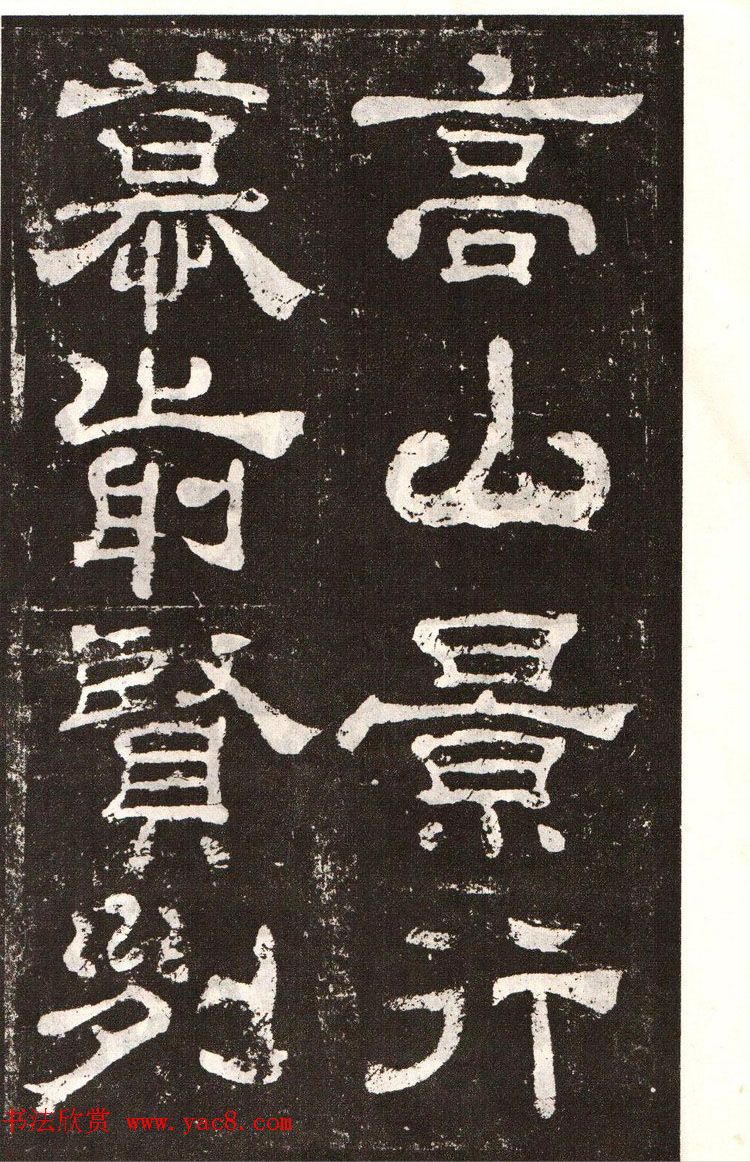 高山景行
慕前賢列
书法欣赏 www.yac8.com